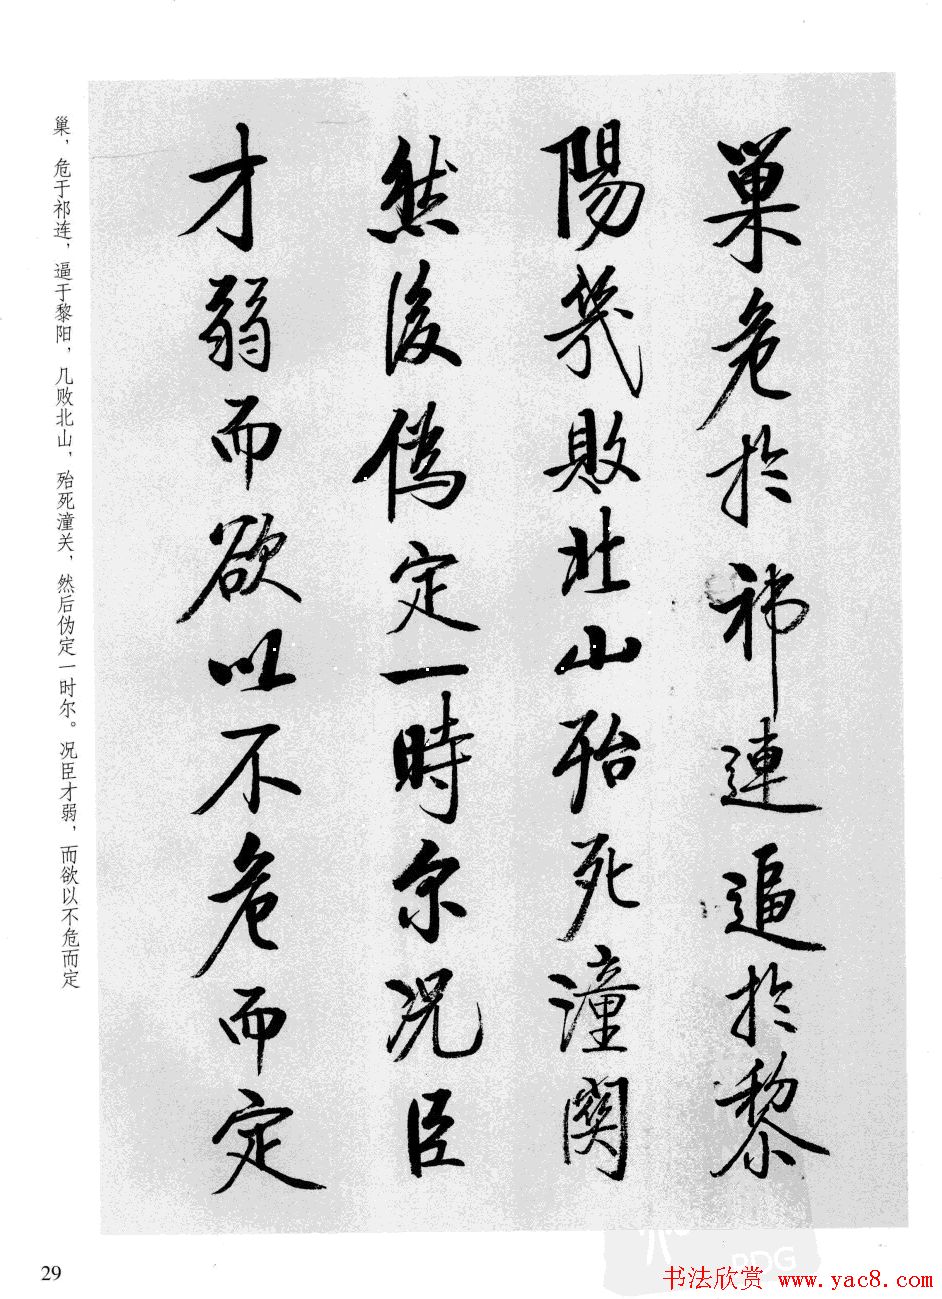 巢危於祁連逼於黎
陽幾敗北山殆死潼關
然後偽定一時尔況臣
才弱而欲以不危而定
巢，危于祁连，逼于黎阳，几败北山，殆死潼关，然后伪定一时尔。况臣才弱，而欲以不危而定
29
PDG
书法欣赏 www.yac8.com